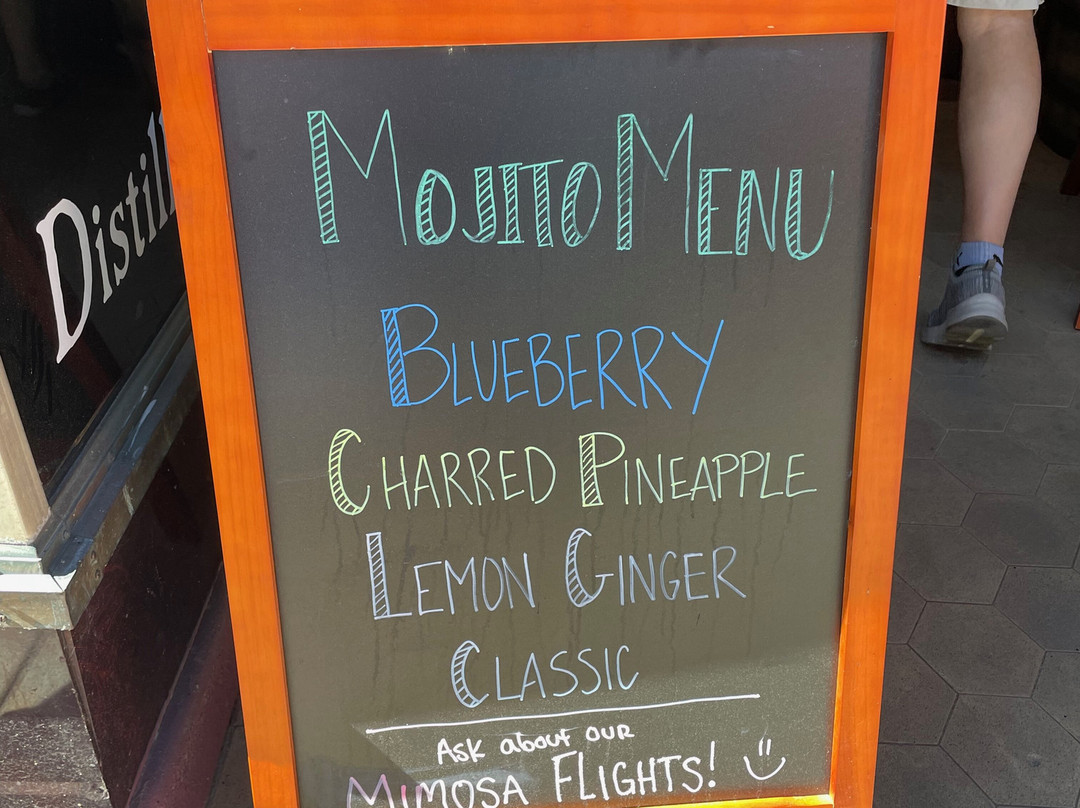 Distill
MOJITO MENU
BLUEBERRY
CHARRED PINEAPPLE
LEMON GINGER
CLASSIC
ASK about OUR
MIMOSA FLIGHTS!